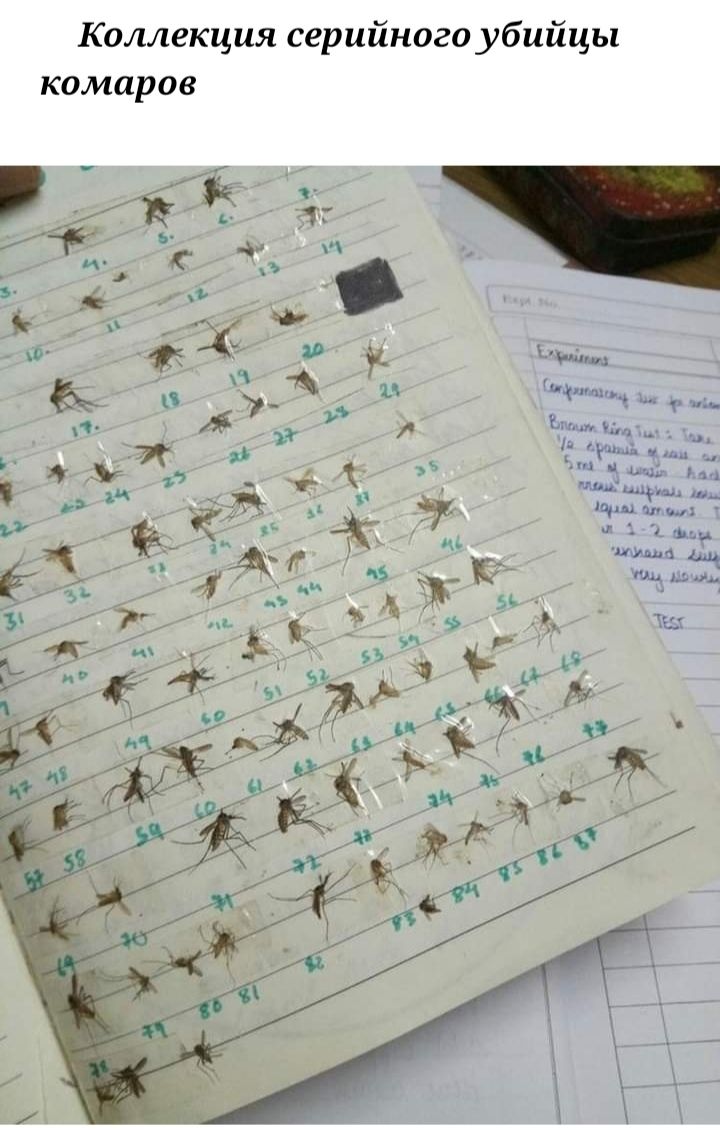 Коллекция серийного убийцы
комаров
3. 4. 5. 6. 7.
10. 11 12 13 14
17. 18 19 20
22 23 24 25 26 27 28 29
31 32 33 34 35 36 37 38
40 41 42 43 44 45 46
47 48 49 50 51 52 53 54 55 56
57 58 59 60 61 62 63 64 65 66 67 68
69 70 71 72 73 74 75 76 77
78 79 80 81 82 83 84 85 86 87
Expt. No.
Experiment
Confirmatory test for anion
Brown Ring Test : Take
1/2 spatula of salt an
5 ml of water. Add
rrous sulphate solu
equal amount
1-2 drops
very slowly
TEST